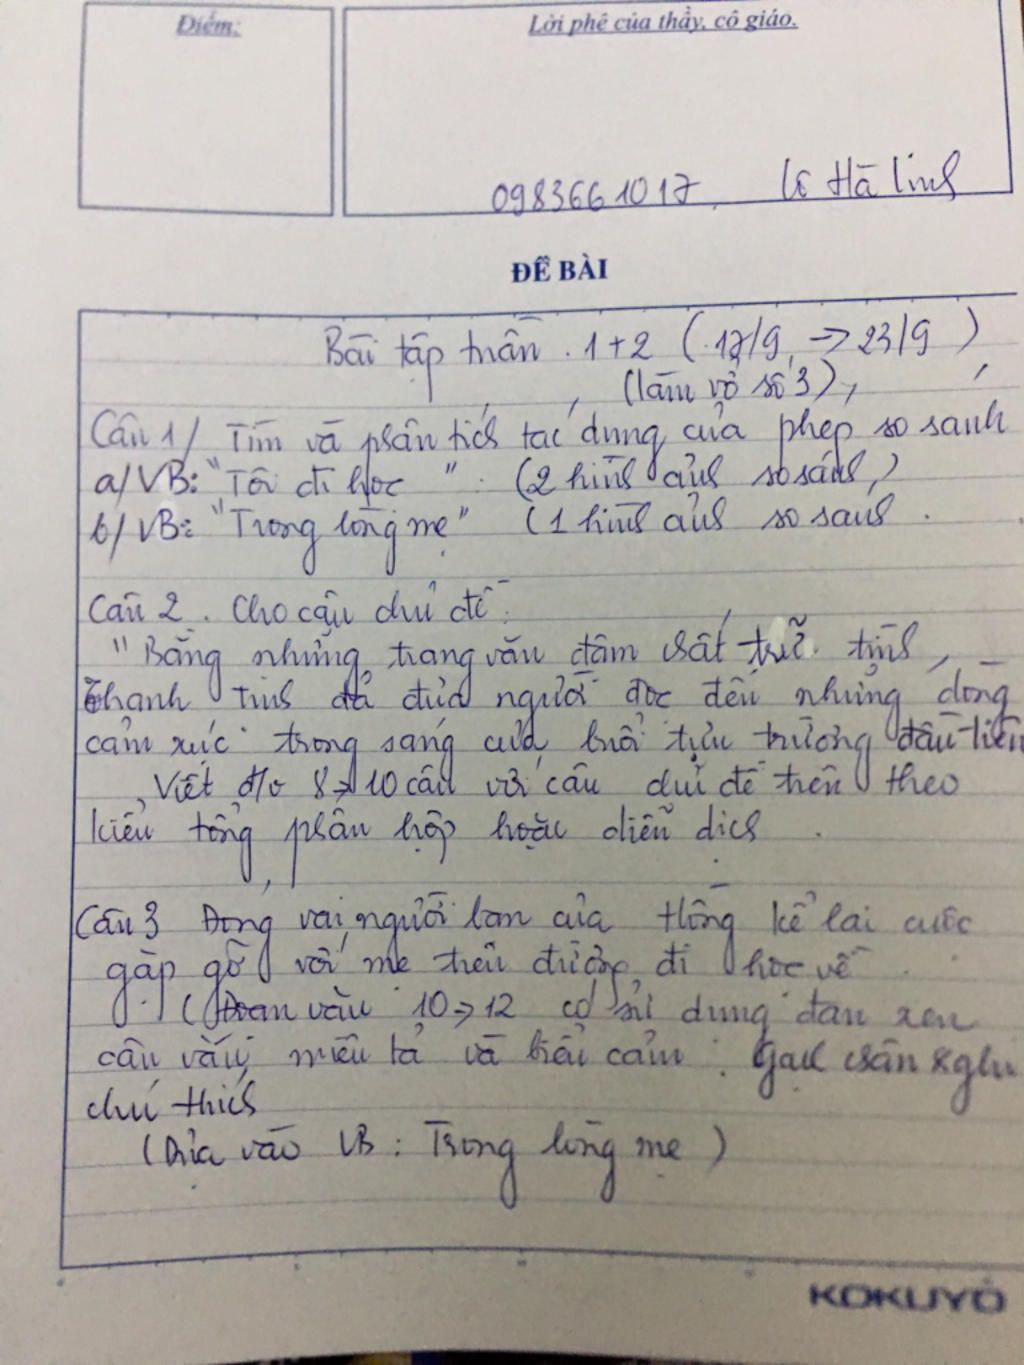 Điểm:
Lời phê của thầy, cô giáo.
0983661017 Lê Hà Linh
ĐỀ BÀI
Bài tập tuần 1+2 (17/9 → 23/9)
(làm vở số 3)
Câu 1/ Tìm và phân tích tác dụng của phép so sánh
a/ VB: "Tôi đi học". (2 hình ảnh so sánh)
b/ VB: "Trong lòng mẹ" (1 hình ảnh so sánh.
Câu 2. Cho câu chủ đề:
"Bằng những trang văn đậm chất trữ tình,
Thanh Tịnh đã đưa người đọc đến những dòng
cảm xúc trong sáng của buổi tựu trường đầu tiên
Viết đ/v 8→10 câu với câu chủ đề trên theo
kiểu tổng phân hợp hoặc diễn dịch.
Câu 3 Đóng vai người bạn của Hồng kể lại cuộc
gặp gỡ với mẹ trên đường đi học về.
(Đoạn văn 10→12 có sử dụng đan xen
câu văn miêu tả và biểu cảm. Gạch chân & ghi
chú thích
(Dựa vào VB: Trong lòng mẹ)
KOKUYO